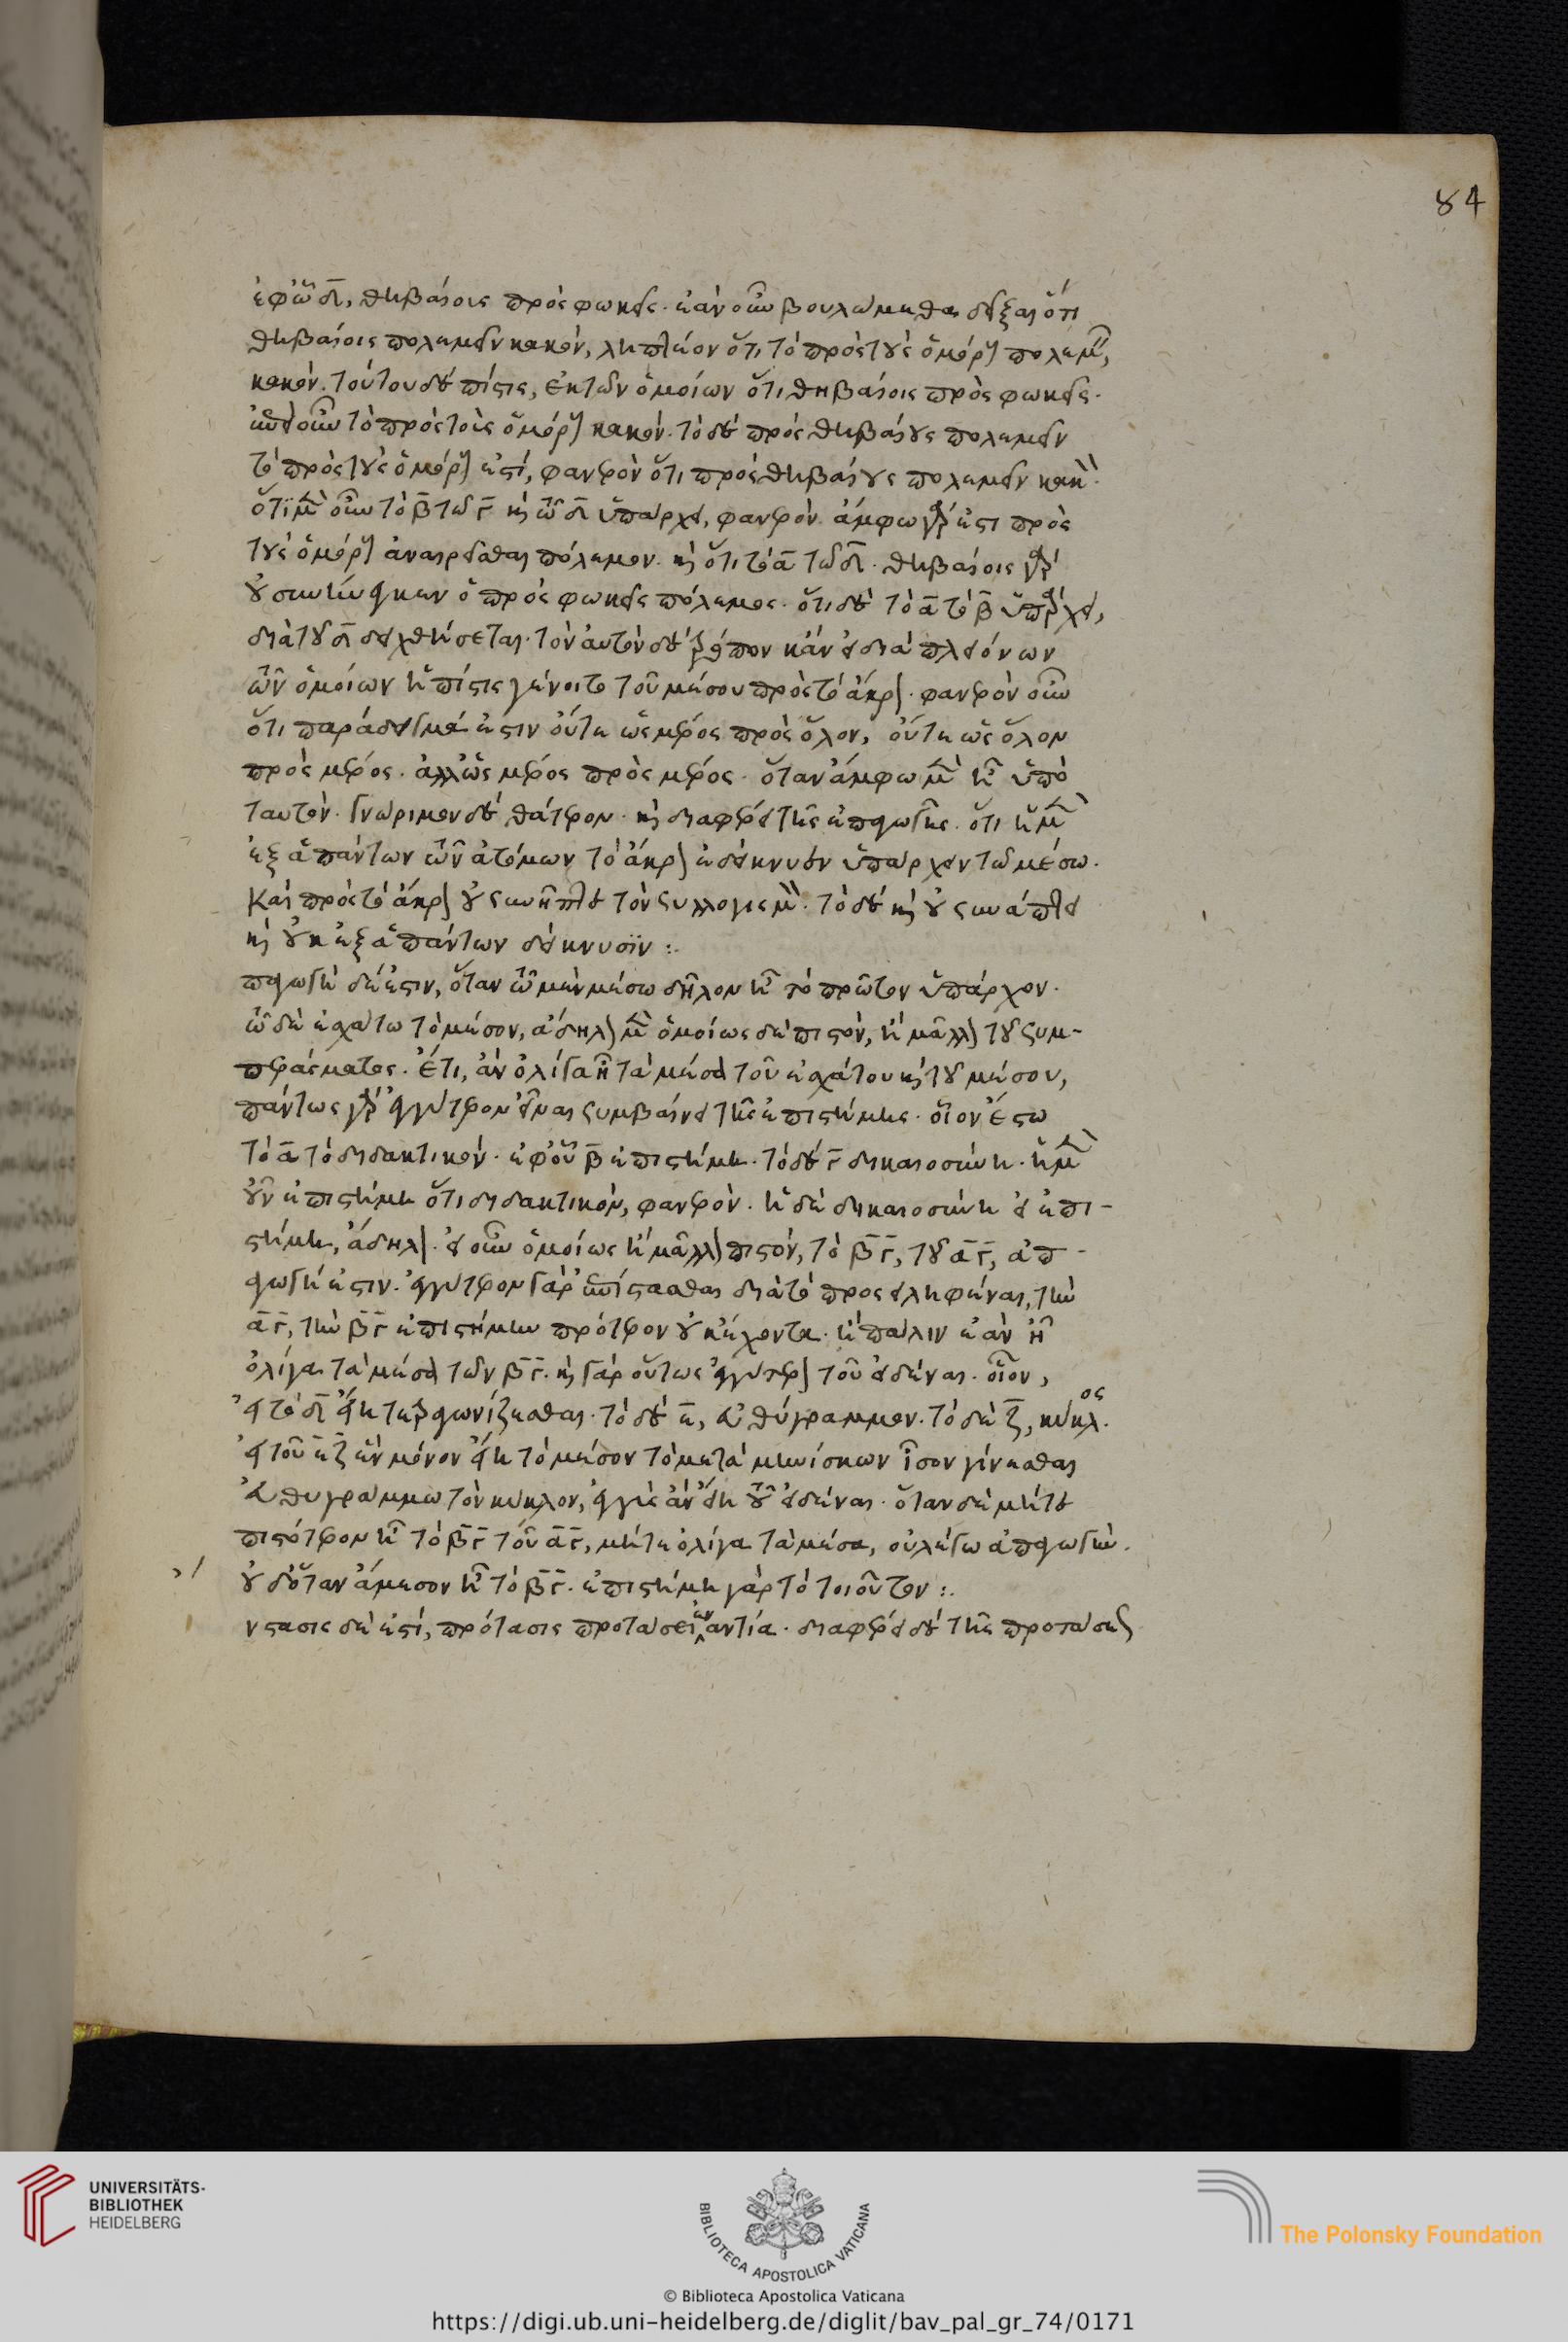 84
ἐφ' ὧ δ̄, θηβαίοις πρὸς φωκεῖς. ἐὰν οὖν βουλώμεθα δεῖξαι ὅτι
θηβαίοις πολεμεῖν κακόν, ληπτέον ὅτι τὸ πρὸς τοὺς ὁμόρους πολεμεῖν,
κακόν. τούτου δὲ πίστις, ἐκ τῶν ὁμοίων ὅτι θηβαίοις πρὸς φωκεῖς.
ἐπεὶ οὖν τὸ πρὸς τοὺς ὁμόρους κακόν. τὸ δὲ πρὸς θηβαίους πολεμεῖν
τὸ πρὸς τοὺς ὁμόρους ἐστί, φανερὸν ὅτι πρὸς θηβαίους πολεμεῖν κακόν.
ὅτι μὲν οὖν τὸ β̄ τῶ γ̄ καὶ τῶ δ̄ ὑπάρχει, φανερόν. ἄμφω γάρ ἐστι πρὸς
τοὺς ὁμόρους ἀναιρεῖσθαι πόλεμον. καὶ ὅτι τὸ ᾱ τῶ δ̄. θηβαίοις γὰρ
οὐ συνήνεγκεν ὁ πρὸς φωκεῖς πόλεμος. ὅτι δὲ τὸ ᾱ τῶ β̄ ὑπάρχει,
διὰ τοῦ δ̄ δειχθήσεται. τὸν αὐτὸν δὲ τρόπον κἂν εἰ διὰ πλειόνων
τῶν ὁμοίων ἡ πίστις γένοιτο τοῦ μέσου πρὸς τὸ ἄκρον. φανερὸν οὖν
ὅτι παράδειγμά ἐστιν οὔτε ὡς μέρος πρὸς ὅλον, οὔτε ὡς ὅλον
πρὸς μέρος. ἀλλ' ὡς μέρος πρὸς μέρος. ὅταν ἄμφω μὲν ἦ ὑπὸ
ταυτόν. γνώριμον δὲ θάτερον. καὶ διαφέρει τῆς ἐπαγωγῆς. ὅτι ἡ μὲν
ἐξ ἁπάντων τῶν ἀτόμων τὸ ἄκρον ἐδείκνυεν ὑπάρχειν τῶ μέσω.
Καὶ πρὸς τὸ ἄκρον οὐ συνῆπτε τὸν συλλογισμόν. τὸ δὲ καὶ οὐ συνάπτει
καὶ οὐκ ἐξ ἁπάντων δείκνυσιν :.
παγωγὴ δέ ἐστιν, ὅταν τῶ μὲν μέσω δῆλον ἦ τὸ πρῶτον ὑπάρχον.
τῶ δὲ ἐσχάτω τὸ μέσον, ἄδηλον μὲν ὁμοίως δὲ πιστόν, ἢ μᾶλλον τοῦ συμ-
περάσματος. ἔτι, ἂν ὀλίγα ἦ τὰ μέσα τοῦ ἐσχάτου καὶ τοῦ μέσου,
πάντως γὰρ ἐγγύτερον εἶναι συμβαίνει τῆς ἐπιστήμης. οἷον ἔστω
τὸ ᾱ τὸ διδακτικόν. ἐφ' οὗ β̄ ἐπιστήμη. τὸ δὲ γ̄ δικαιοσύνη. ἡ μὲν
οὖν ἐπιστήμη ὅτι διδακτικόν, φανερόν. ἡ δὲ δικαιοσύνη εἰ ἐπι-
στήμη, ἄδηλον. εἰ οὖν ὁμοίως ἢ μᾶλλον πιστόν, τὸ β̄γ̄, τοῦ ᾱγ̄, ἀπ-
αγωγή ἐστιν. ἐγγύτερον γὰρ ἐπίστασθαι διὰ τὸ προσειληφέναι, τὴν
ᾱγ̄, τὴν β̄γ̄ ἐπιστήμην πρότερον οὐκ ἔχοντα. ἢ πάλιν ἐὰν ἦ
ὀλίγα τὰ μέσα τῶν β̄γ̄. καὶ γὰρ οὕτως ἐγγύτερον τοῦ εἰδέναι. οἷον,
εἰ τὸ δ̄ εἴη τετραγωνίζεσθαι. τὸ δὲ ε̄, εὐθύγραμμον. τὸ δὲ ζ̄, κύκλος.
εἰ τοῦ ε̄ζ̄ ἓν μόνον εἴη τὸ μέσον τὸ μετὰ μηνίσκων ἴσον γίνεσθαι
εὐθυγράμμω τὸν κύκλον, ἐγγὺς ἂν εἴη τοῦ εἰδέναι. ὅταν δὲ μήτε
πιστότερον ἦ τὸ β̄γ̄ τοῦ ᾱγ̄, μήτε ὀλίγα τὰ μέσα, οὐ λέγω ἀπαγωγήν.
οὐδ' ὅταν ἄμεσον ἦ τὸ β̄γ̄. ἐπιστήμη γὰρ τὸ τοιοῦτον :.
νστασις δέ ἐστί, πρότασις προτάσει ἐναντία. διαφέρει δὲ τῆς προτάσεως
UNIVERSITÄTS-
BIBLIOTHEK
HEIDELBERG
BIBLIOTECA APOSTOLICA VATICANA
The Polonsky Foundation
© Biblioteca Apostolica Vaticana
https://digi.ub.uni-heidelberg.de/diglit/bav_pal_gr_74/0171